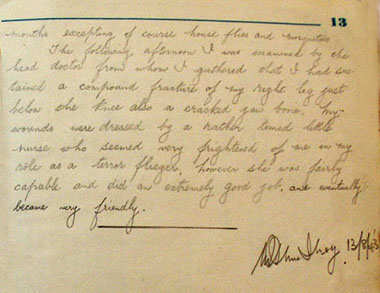 13
months excepting of course house flies and mosquitoes.
The following afternoon I was examined by the
head doctor from whom I gathered that I had sus-
tained a compound fracture of my right leg just
below the knee also a cracked jaw bone, my
wounds were dressed by a rather timed little
nurse who seemed very frightend of me in my
rôle as a terror flieger, however she was fairly
capable and did an extremely good job, and eventually
became very friendly.
13/8/43